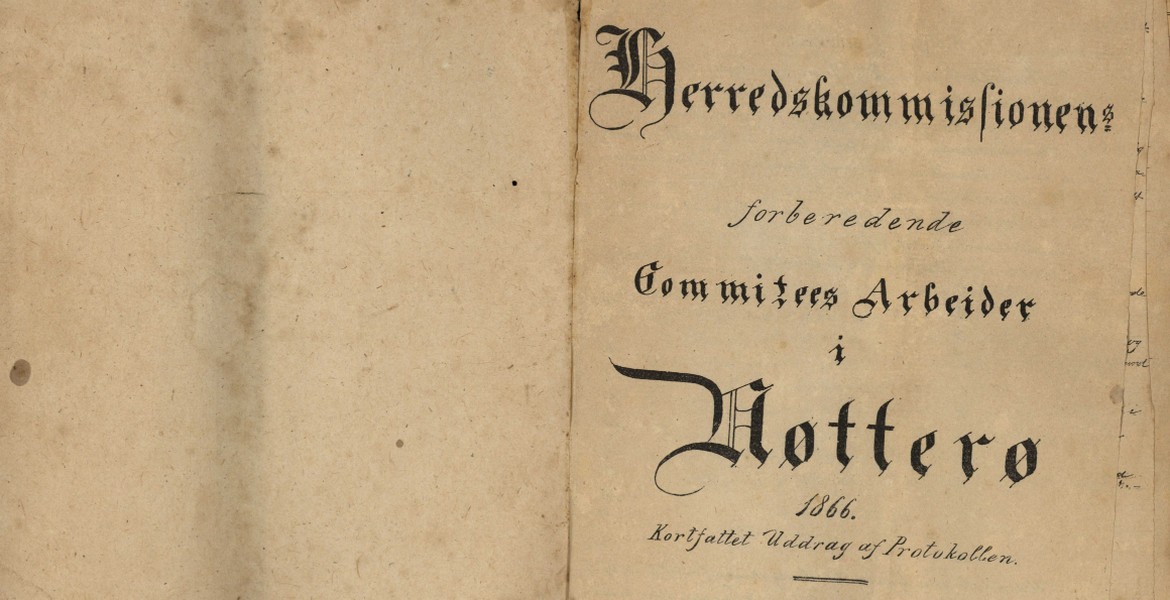 Herredskommissionens
forberedende
Commitees Arbeider
i
Nøtterø
1866.
Kortfattet Uddrag af Protokollen.